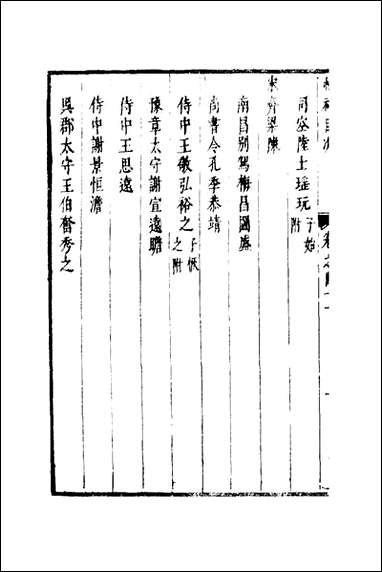 司空陸士瑤玩子始附
宋齊梁陳
南昌別駕梅昌國盛
尚書令孔季恭靖
侍中王敬弘裕之子恢之附
豫章太守謝宣遠瞻
侍中王思遠
侍中謝景恒澹
吳郡太守王伯奮秀之